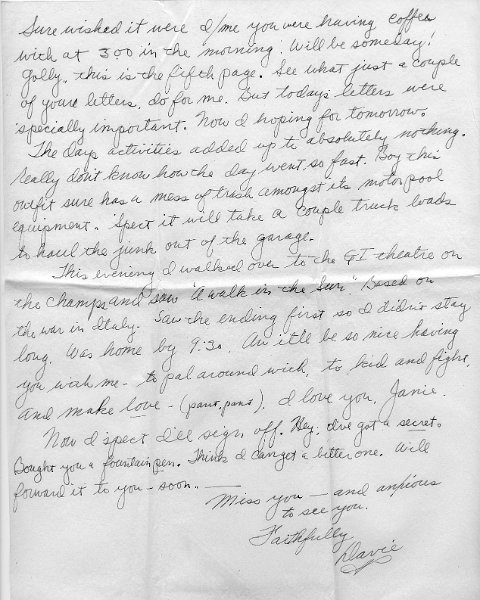 Sure wished it were I/me you were having coffee
wich at 300 in the morning. Will be someday!
Golly, this is the fifth page. See what just a couple
of youre letters, do for me. But todays letters were
specially important. Now I hoping for tomorrow.
The days activities added up to absolutely nothing.
Really dont know how the day went so fast. Boy this
outfit sure has a mess of trash amongst its motorpool
equipment. Spect it will take a couple truck loads
to haul the junk out of the garage.
This evening I walked over to the GI theatre on
the champs and saw "A walk in the Sun" Based on
the war in Italy. Saw the ending first so I didn't stay
long. Was home by 9:30. Aw it'll be so nice having
you wich me - to pal around wich, to kid and fight,
and make love - (pant, pant). I love you, Janie.
Now I spect I'll sign off. Hey: I've got a secret.
Bought you a fountain pen. Think I can get a bitter one. Will
forward it to you - soon. -
Miss you - and anxious
to see you.
Faithfully
Davie